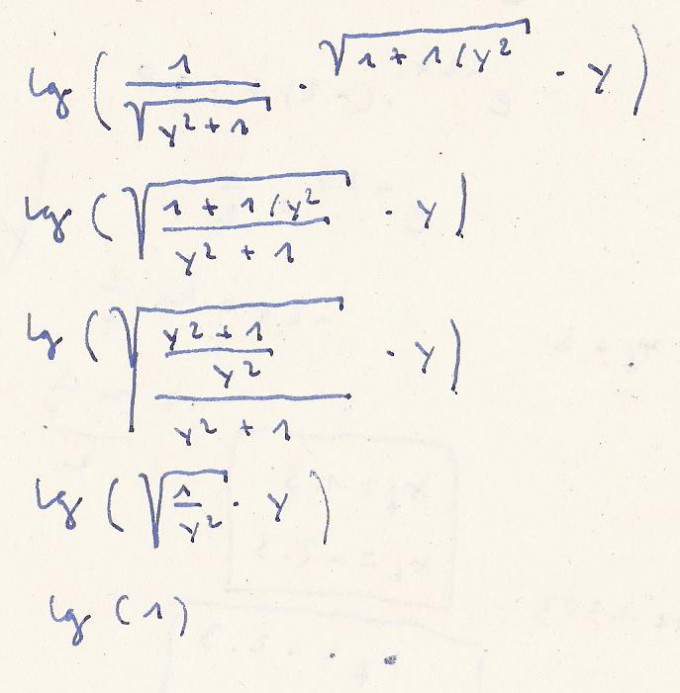 lg ( 1 / √(y² + 1) · √(1 + 1/y²) · y )
lg ( √((1 + 1/y²) / (y² + 1)) · y )
lg ( √(((y² + 1) / y²) / (y² + 1)) · y )
lg ( √(1 / y²) · y )
lg (1)